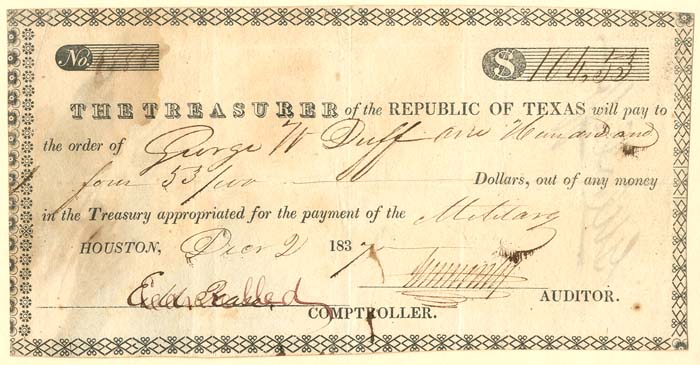 No.
$ 104,53
THE TREASURER of the REPUBLIC OF TEXAS will pay to
the order of George W Duff one Hundred and
four 53/100 Dollars, out of any money
in the Treasury appropriated for the payment of the Military
HOUSTON, Decr 2 1837
AUDITOR.
COMPTROLLER.